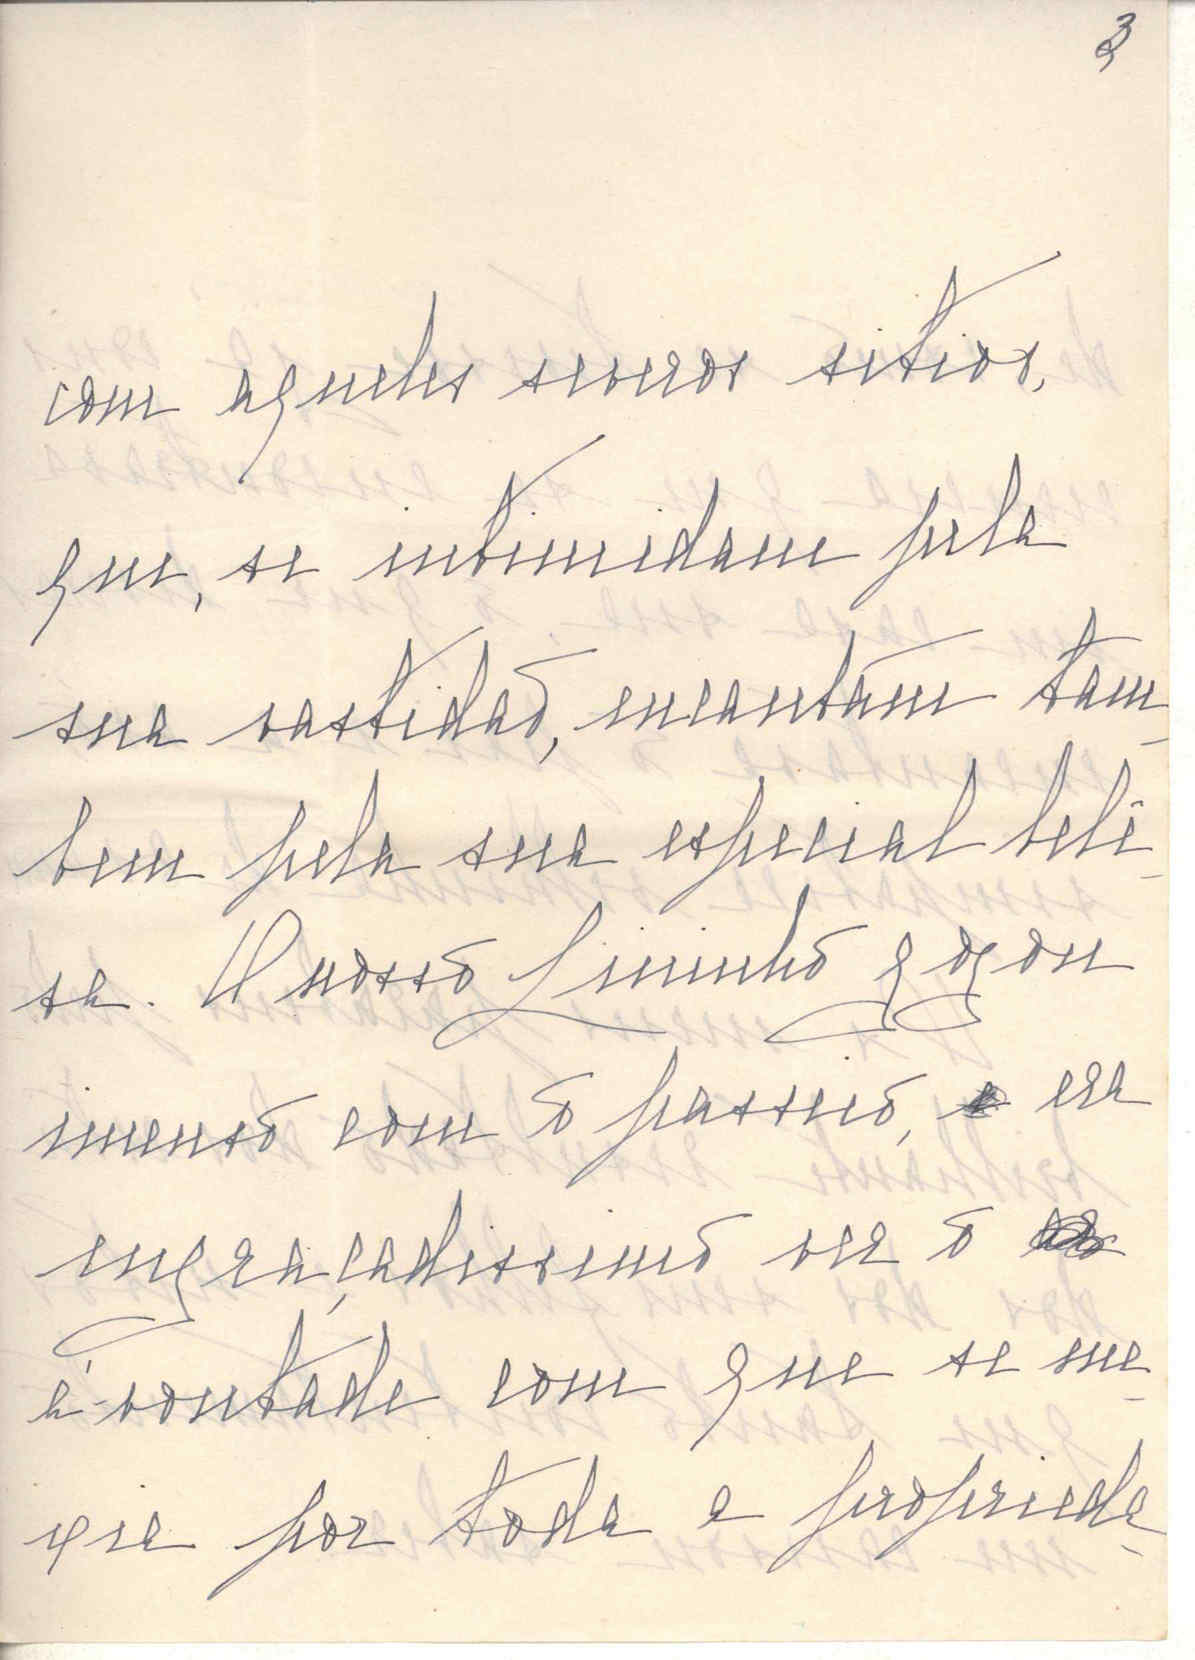 3
com aqueles severos sitios,
que, se intimidam pela
sua vastidão, encantam tam-
bem pela sua especial bele-
sa. O nosso Lininho gogou
imenso com o passeio, era
engraçadissimo ver o
á-vontade com que se me-
xia por toda a proprieda-